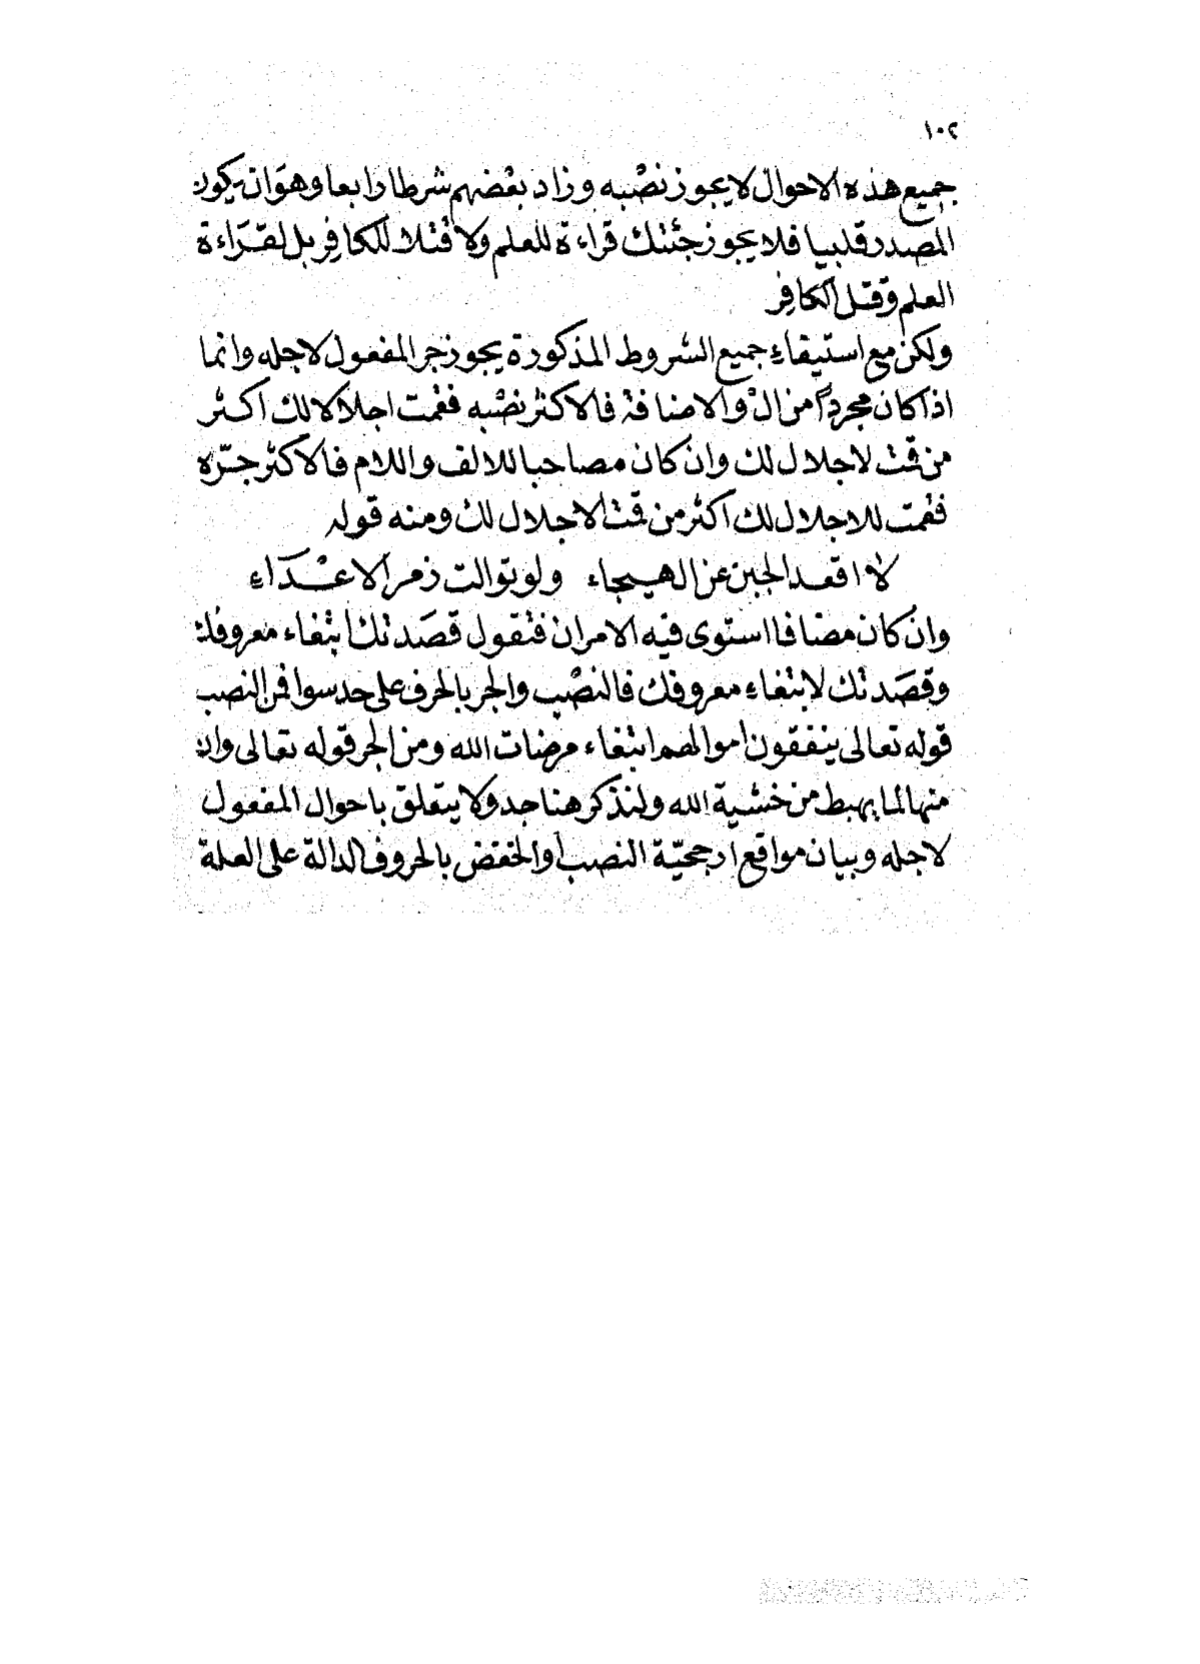 ١٠٢
جميع هذه الاحوال لا يجوز نصْبه وزاد بعْضهم شرطا رابعا وهوَ ان يكون
المصدر قلبيا فلا يجوز جئتك قراءة للعلم ولا قتْلا للكافِر بل لقرَاءة
العلم وقتل الكافِر
ولكن مع استيفاءِ جميع الشروط المذكورة يجوز جر المفعول لاجله وانما
اذا كان مجرداً من الْ والاضافة فالاكثر نصْبه فقمت اجلالا لك اكثر
من قمْت لاجلال لك وان كان مصاحبا للالف واللام فالاكثر جرّه
فقمت للاجلال لك اكثر من قمت الاجلال لك ومنه قوله
لا اقعد الجبن عن الهيجاء ولو توالت زمر الاعْدَاءِ
وان كان مضافا استوى فيه الامران فتقول قصَدتك ابتغاء معروفك
وقصَدتك لابتغاء معروفك فالنصْب والجر بالحرف على حد سوا فمن النصب
قوله تعالى ينفقون اموالهم ابتغاء مرضات الله ومن الجر قوله تعالى وان
منها لما يهبط من خشية الله ولنذكر هنا جدولا يتعلق باحوال المفعول
لاجله وبيان مواقع ارجحيّة النصب او الخفض بالحروف الدالة على العلة